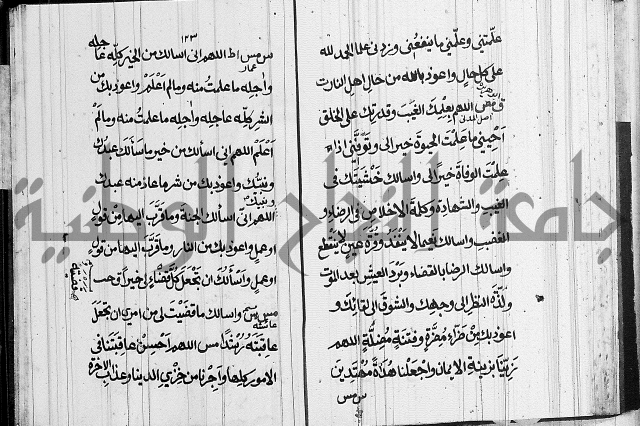 علمتني وعلمني ما ينفعني وزدني علما الحمد لله
على كل حال واعوذ بالله من حال اهل النار ت
ق مص اللهم بعلمك الغيب وقدرتك على الخلق
احيني ما علمت الحيوة خيرا لي وتوفني اذا
علمت الوفاة خيرا لي واسالك خشيتك في
الغيب والشهادة وكلمة الاخلاص في الرضا و
الغضب واسالك نعيما لا ينفد وقرة عين لا ينقطع
واسالك الرضا بالقضاء وبرد العيش بعد الموت
ولذة النظر الى وجهك والشوق الى لقائك و
اعوذ بك من ضراء مضرة وفتنة مضلة اللهم
زينا بزينة الايمان واجعلنا هداة مهتدين
س مس
١٢٣
س مس اط اللهم اني اسالك من الخير كله عاجله
واجله ما علمت منه وما لم اعلم واعوذ بك من
الشر كله عاجله واجله ما علمت منه وما لم
اعلم اللهم اني اسالك من خير ما سالك عبدك
ونبيك واعوذ بك من شر ما عاذ منه عبدك
ونبيك
اللهم اني اسالك الجنة وما قرب اليها من قول
او عمل واعوذ بك من النار وما قرب اليها من قول
او عمل واسألك ان تجعل كل قضاء لي خيرا ق حب
مس واسالك ما قضيت لي من امر ان تجعل
عاقبته رشدا مس اللهم احسن عاقبتنا في
الامور كلها واجرنا من خزي الدنيا وعذاب الاخرة
جامعة النجاح الوطنية